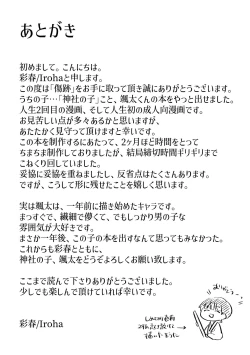 あとがき
初めまして。こんにちは。
彩春/Irohaと申します。
この度は「傷跡」をお手に取って頂き誠にありがとうございます。
うちの子…「神社の子」こと、颯太くんの本をやっと出せました。
人生2回目の漫画、そして人生初の成人向漫画です。
お見苦しい点が多々あるかと思いますが、
あたたかく見守って頂けますと幸いです。
この本を制作するにあたって、2ヶ月ほど時間をとって
ちまちま制作しておりましたが、結局締切時間ギリギリまで
こねくり回していました。
妥協に妥協を重ねましたし、反省点はたくさんあります。
ですが、こうして形に残せたことを嬉しく思います。
実は颯太は、一年前に描き始めたキャラです。
まっすぐで、繊細で儚くて、でもしっかり男の子な
雰囲気が大好きです。
まさか一年後、この子の本を出すなんて思ってもみなかった。
これからも彩春とともに、
神社の子、颯太をどうぞよろしくお願い致します。
ここまで読んで下さりありがとうございました。
少しでも楽しんで頂けていれば幸いです。
彩春/Iroha
ありがとう